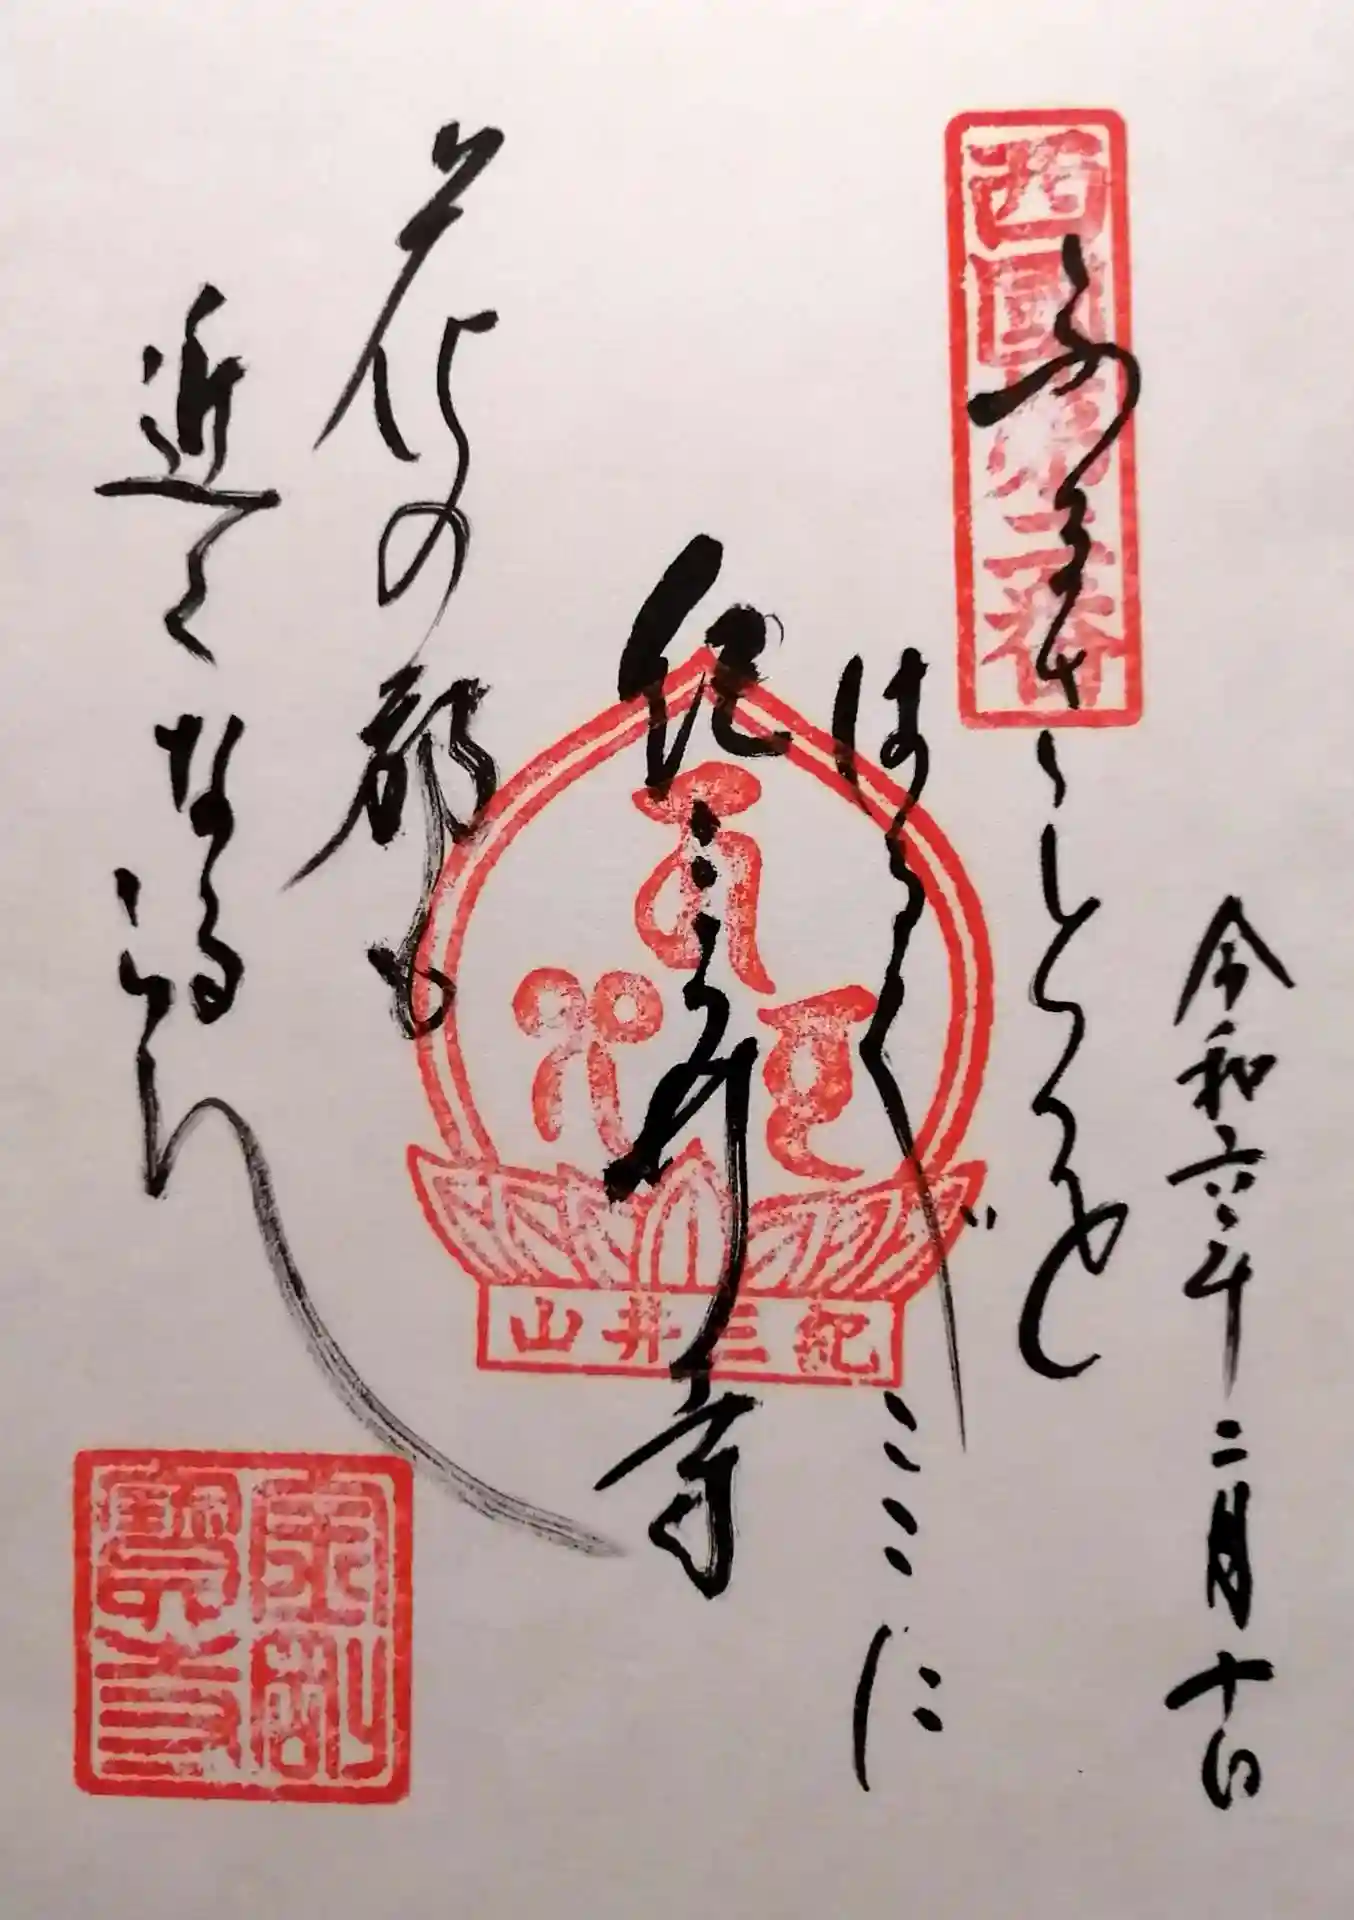 令和六年二月十日
西國第二番
ふるさとを
はる〲ここに
紀三井寺
花の都も
近くなるらん
紀三井山
金剛寶寺